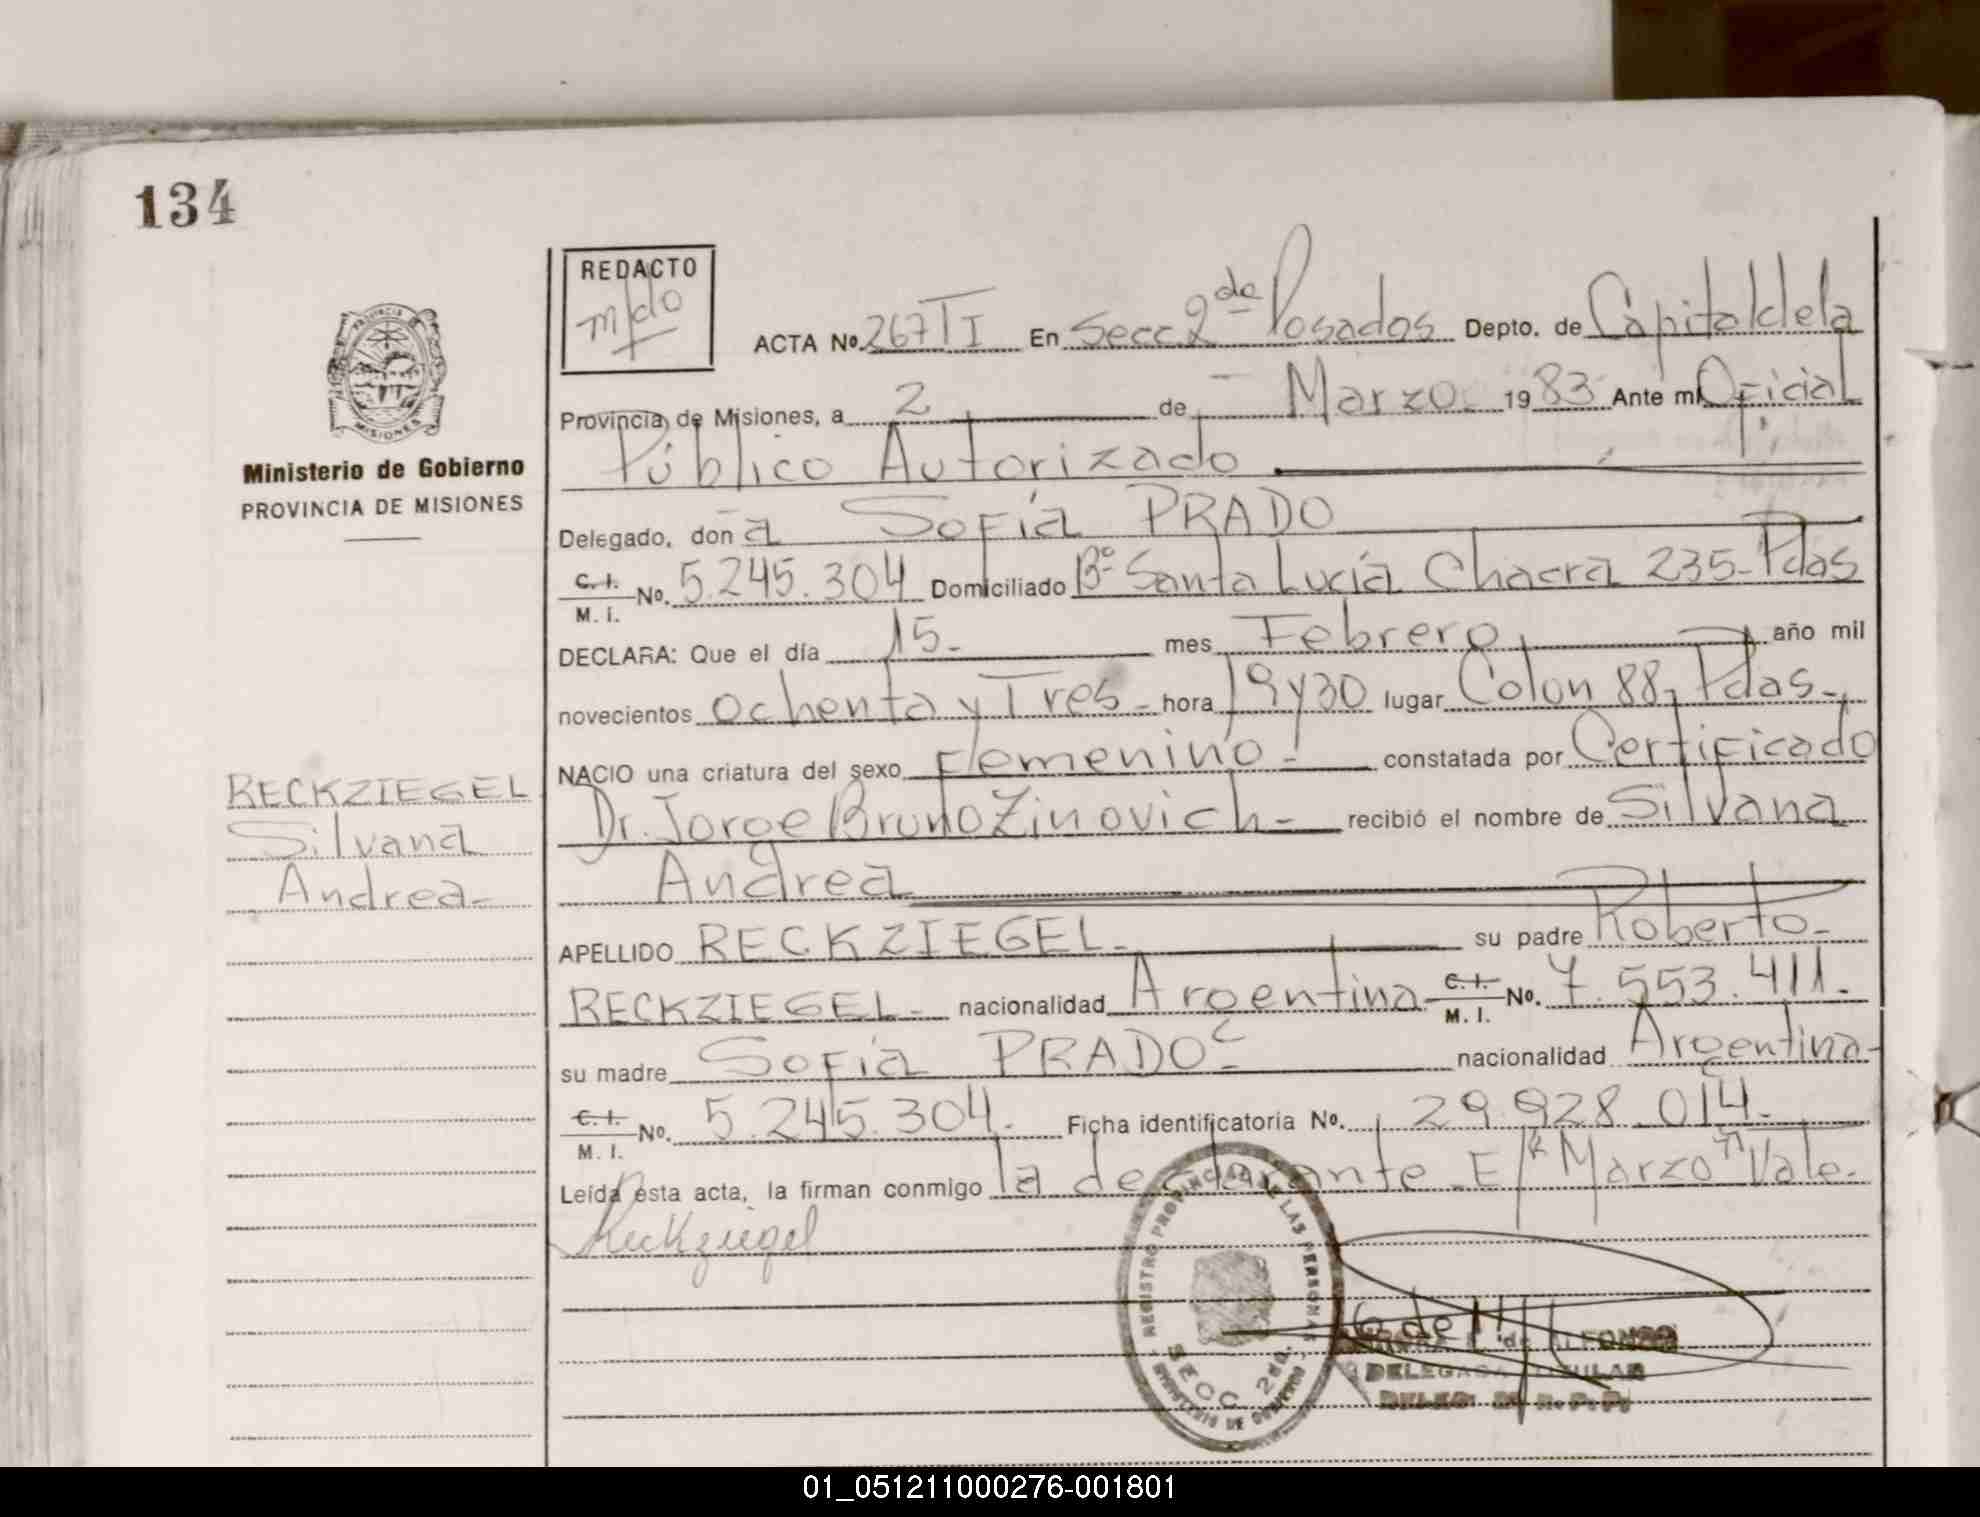 134
REDACTO
ACTA Nº. 267 T I En Secc 2da Posadas Depto. de Capital de la
Provincia de Misiones, a 2 de Marzo 1983 Ante mí Oficial
Público Autorizado
Ministerio de Gobierno
PROVINCIA DE MISIONES
Delegado, don a Sofía PRADO
C. I. M. I. No. 5.245.304 Domiciliado Bº Santa Lucía Chacra 235-Pdas
DECLARA: Que el día 15- mes Febrero año mil
novecientos ochenta y Tres- hora 19y30 lugar Colon 88, Pdas-
NACIO una criatura del sexo Femenino- constatada por Certificado
Dr. Jorge Bruno Zinovich- recibió el nombre de Silvana
Andrea
RECKZIEGEL
Silvana
Andrea-
APELLIDO RECKZIEGEL- su padre Roberto-
RECKZIEGEL- nacionalidad Argentina- C. I. M. I. No. 7.553.411.
su madre Sofía PRADO- nacionalidad Argentina-
C. I. M. I. No. 5.245.304. Ficha identificatoria No. 29.928.014.
Leída esta acta, la firman conmigo la declarante E/R "Marzo" Vale.
Reckziegel
REGISTRO PROVINCIAL DE LAS PERSONAS
SECC 2da.
MINISTERIO DE GOBIERNO
de ALFONSO
DELEGADA TITULAR
DELEG. R. P. P.
01_051211000276-001801